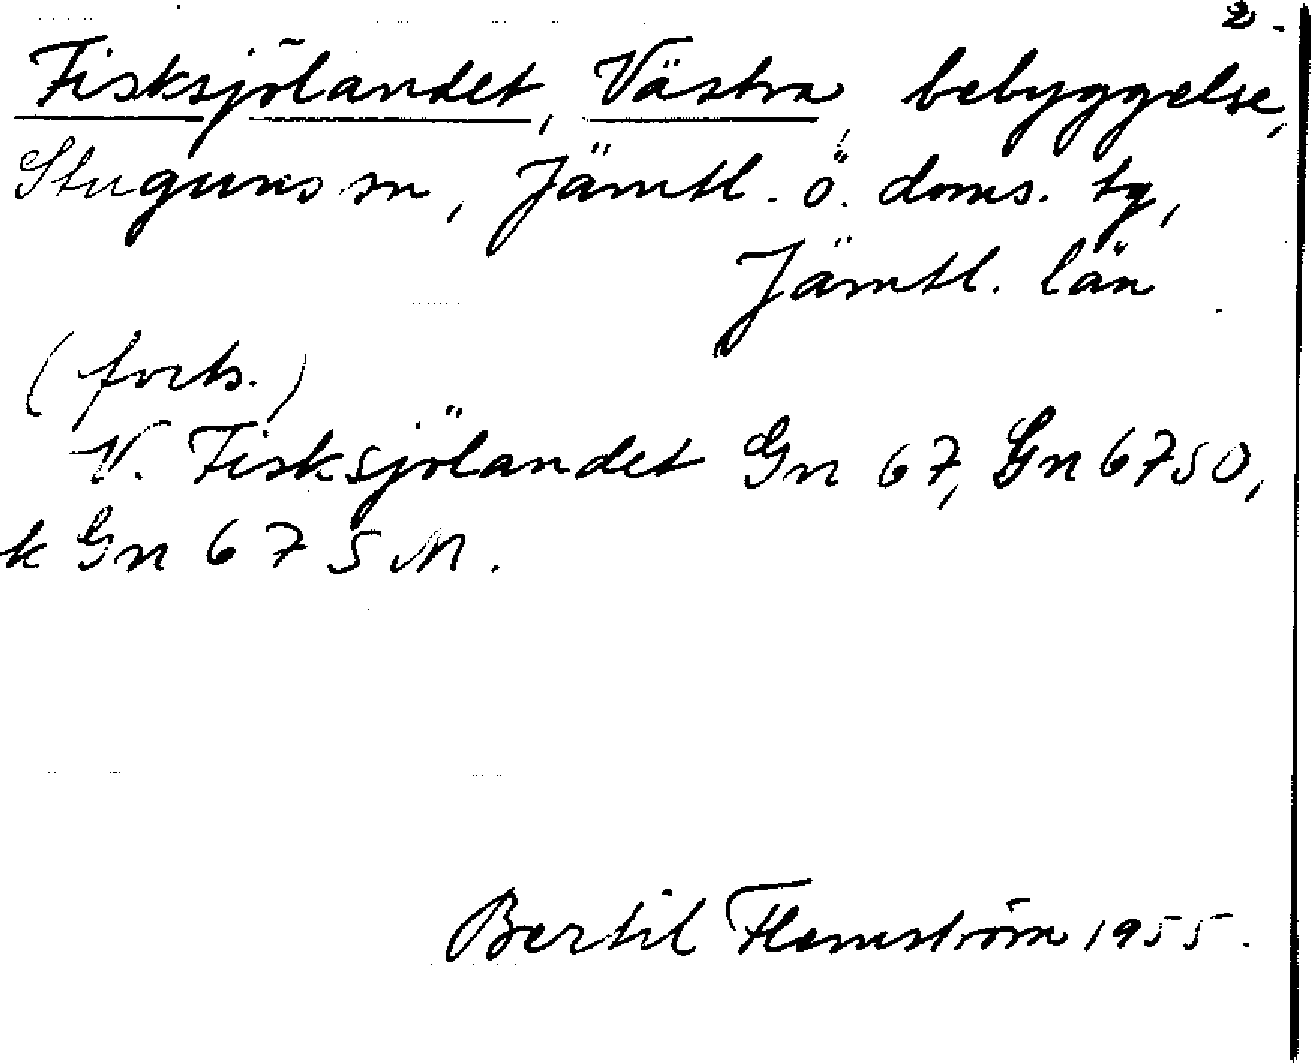 2.
Fisksjölandet, Västra, bebyggelse,
Stuguns sn, Jämtl. ö. doms. tg,
Jämtl. län
(forts.)
V. Fisksjölandet Gn 67, Gn 67 SO,
k Gn 67 SM.
Bertil Flemström 1955.